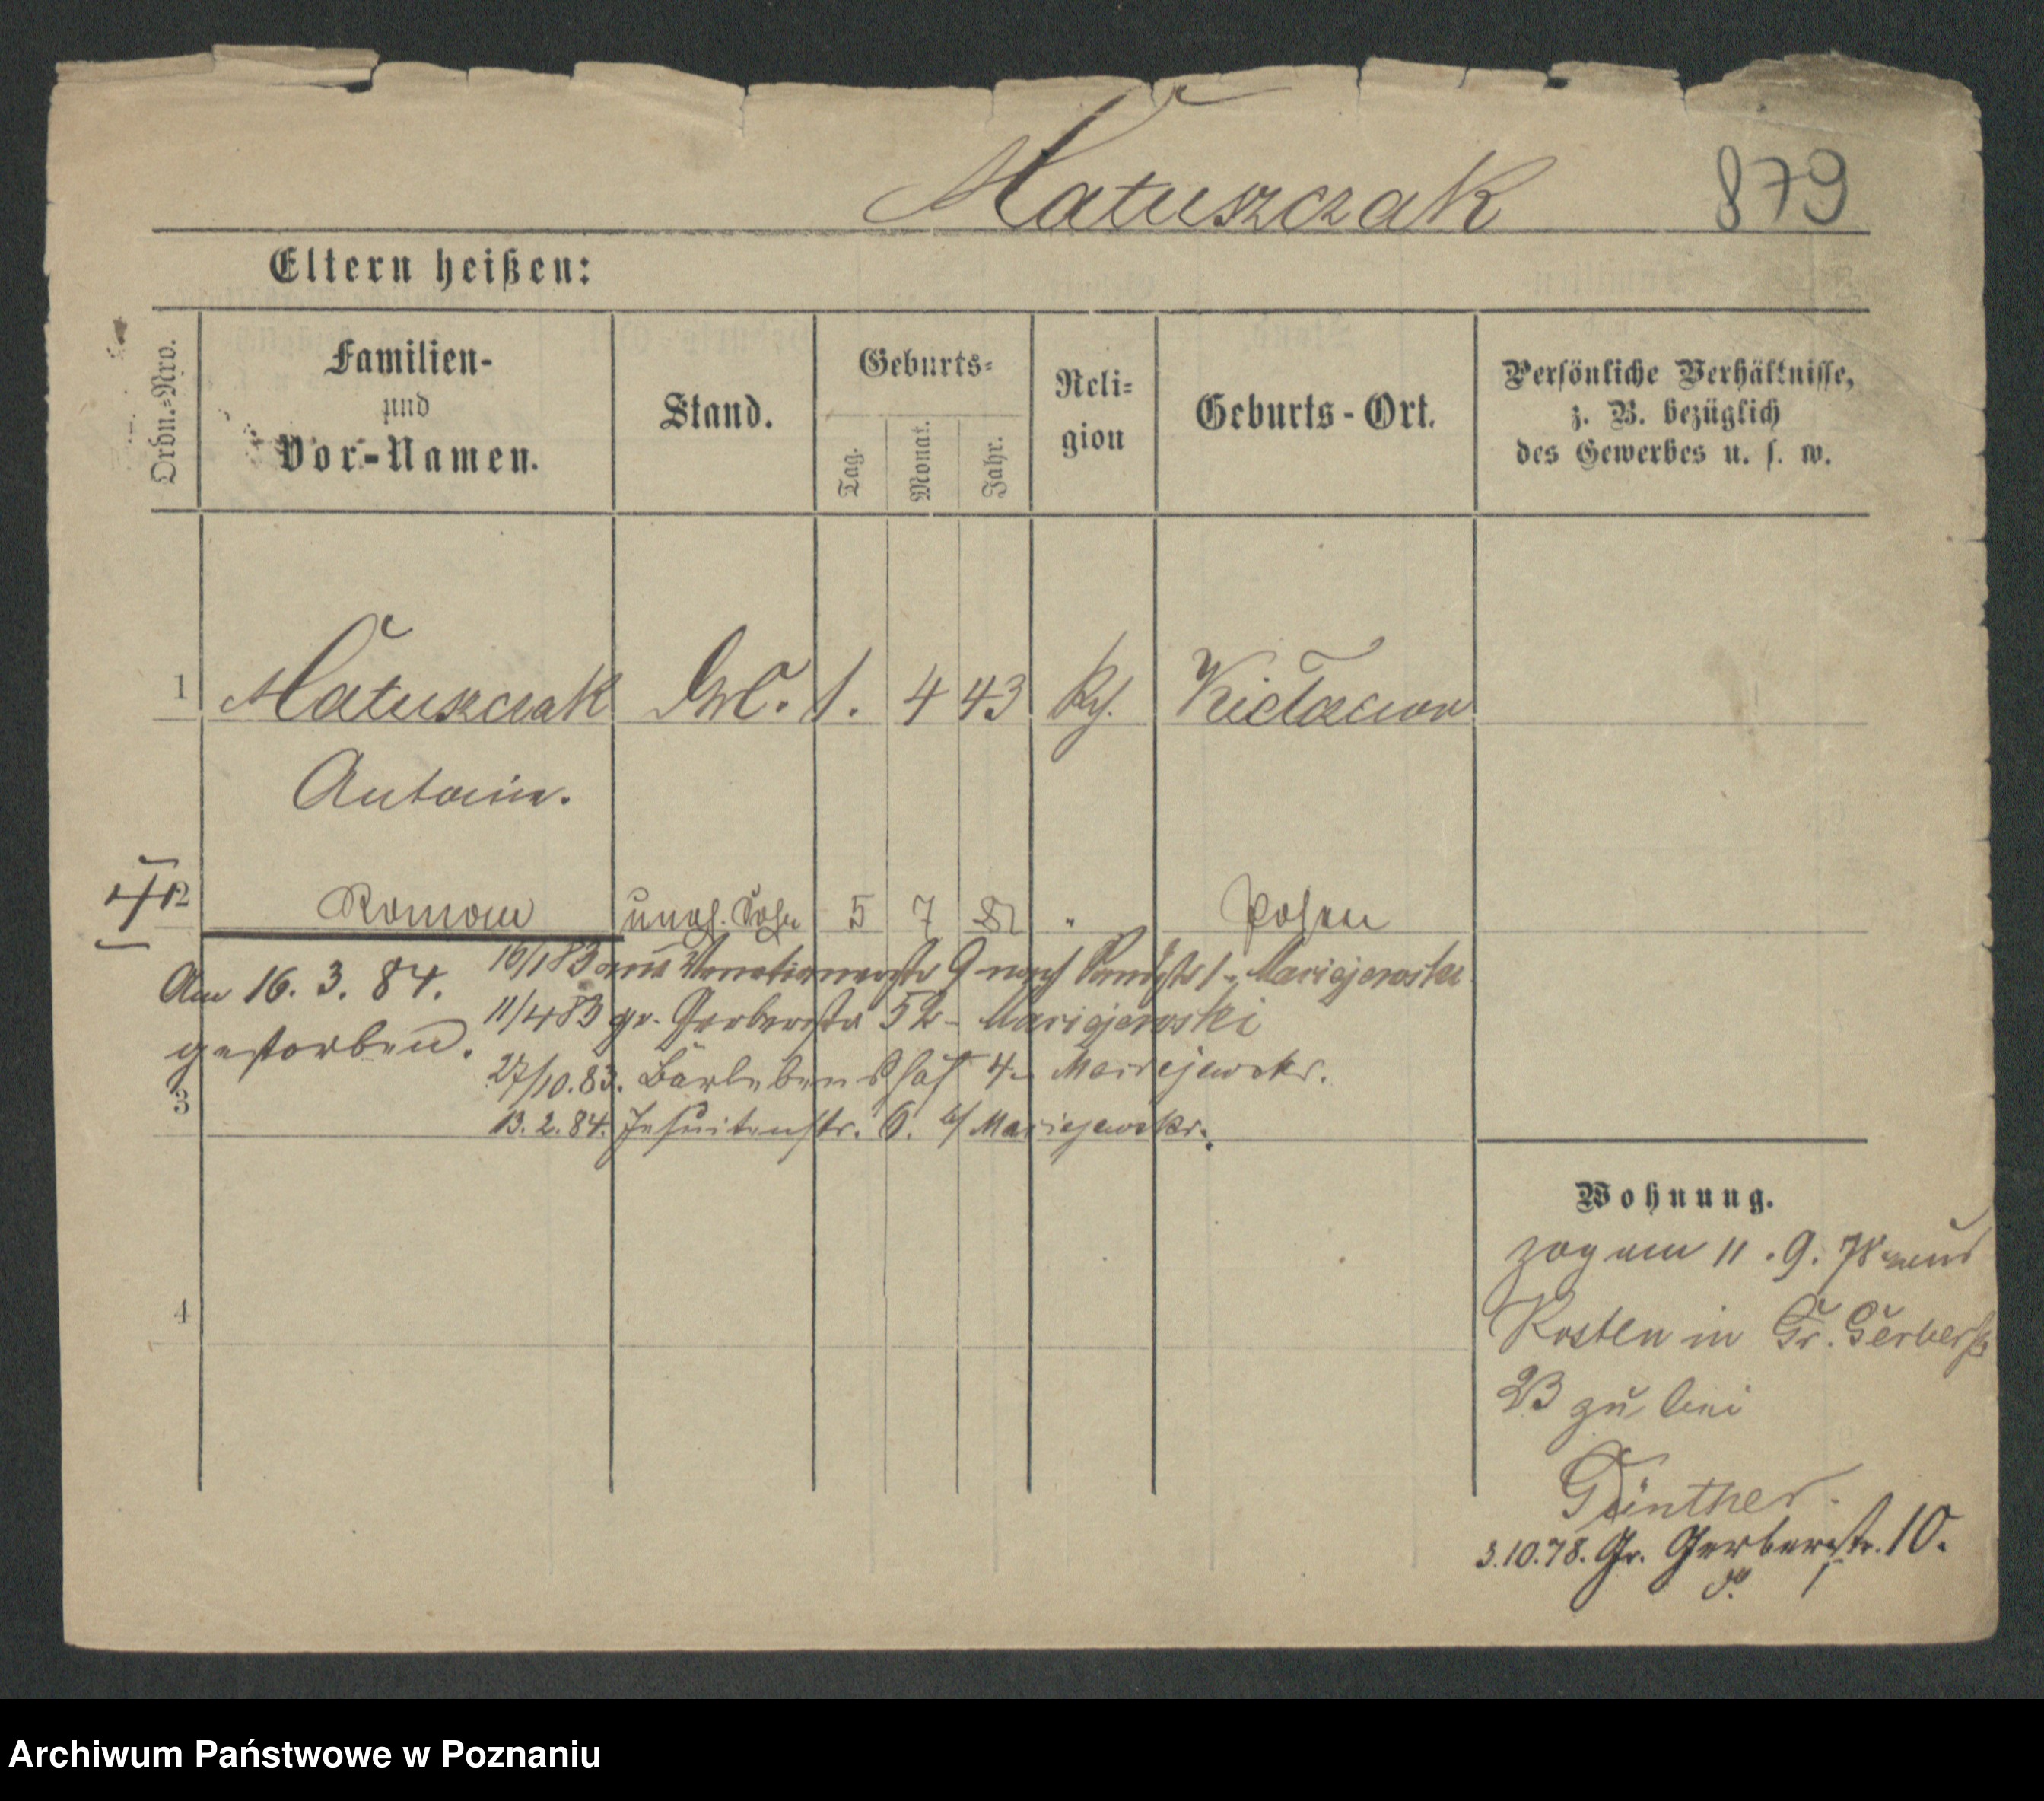 Matuszczak 879
Eltern heißen:
Ordn.=Nro.
Familien-
und
Vor-Namen.
Stand.
Geburts=
Tag.
Monat.
Jahr.
Reli=
gion
Geburts-Ort.
Persönliche Verhältnisse,
z. B. bezüglich
des Gewerbes u. s. w.
1 Matuszczak 1. 4 43
Antonie.
2 Roman unehl. Sohn 5 7 82 " Posen
Am 16. 3. 84.
gestorben.
16/1 83 aus 9 nach 1
11/4 83 gr. Gerberstr 52
27/10.83. 4
13.2.84. Jesuitenstr. 6.
3
4
Wohnung.
zog am 11. 9. 78 aus
Kosten in Gr. Gerberstr
23 zu bei
Günther.
3.10.78. Gr. Gerberstr. 10.
Archiwum Państwowe w Poznaniu